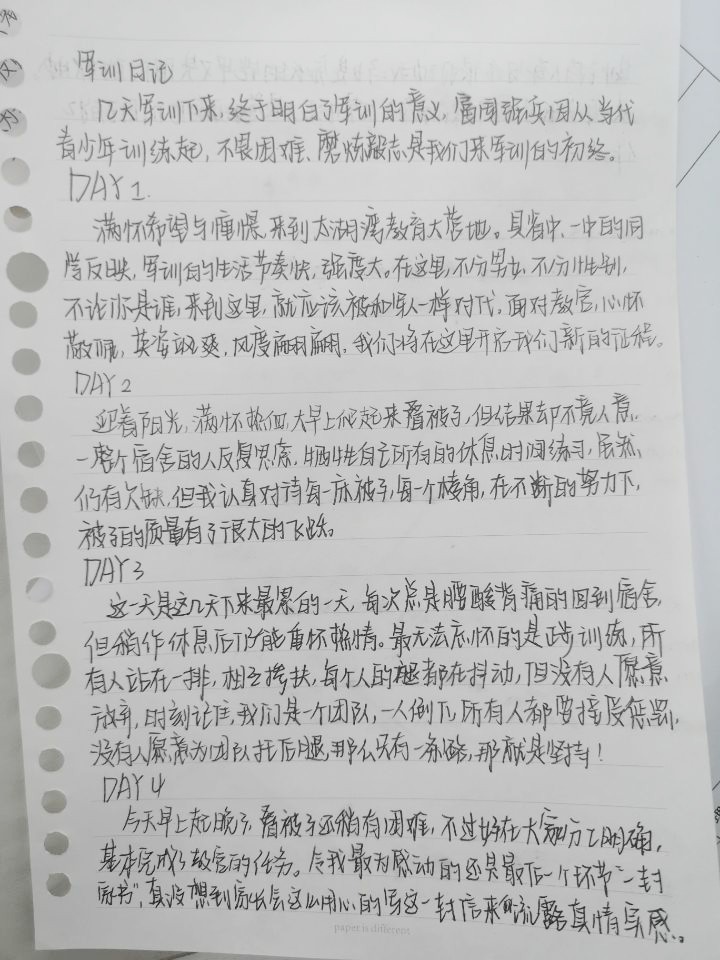 军训日记
几天军训下来,终于明白了军训的意义,富国强兵因从当代
青少年训练起,不畏困难、磨炼毅志是我们来军训的初终。
DAY 1.
满怀希望与憧憬,来到太湖湾教育大营地。具省中、一中的同
学反映,军训的生活节奏快,强度大。在这里,不分男女,不分性别,
不论你是谁,来到这里,就应该被和军人一样对代,面对教官,心怀
敬佩,英姿飒爽,风度翩翩,我们将在这里开启我们新的征程。
DAY 2
迎着阳光,满怀热血,大早上爬起来叠被子,但结果却不竟人意,
一整个宿舍的人反复思索,牺牲自己所有的休息时间练习,虽然
仍有欠缺,但我认真对待每一床被子,每一个棱角,在不断的努力下,
被子的质量有了很大的飞跃。
DAY 3
这一天是这几天下来最累的一天,每次总是腰酸背痛的回到宿舍,
但稍作休息后仍能重怀热情。最无法忘怀的是正步训练,所
有人站在一排,相互搀扶,每个人的腿都在抖动,但没有人愿意
放弃,时刻记住,我们是一个团队,一人倒下,所有人都要接受惩罚,
没有人愿意为团队托后腿,那么只有一条路,那就是坚持!
DAY 4
今天早上起晚了,叠被子还稍有困难,不过好在大家分工明确,
基本完成了教官的任务。令我最为感动的还是最后一个环节“一封
家书”,真没想到家长会这么用心的写这一封信来流露真情实感。
paper is different